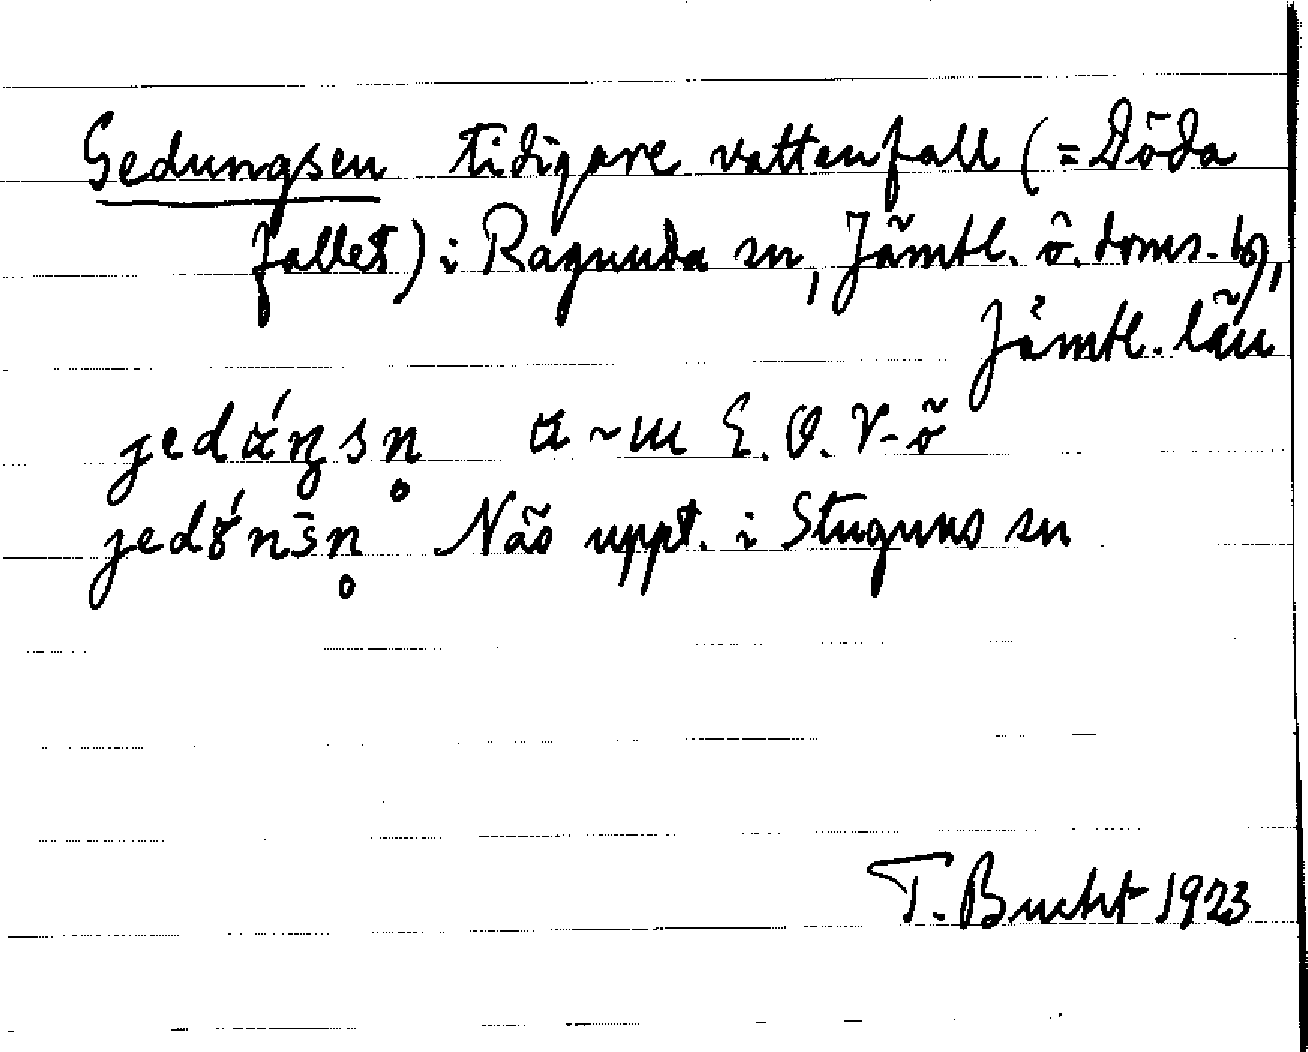 Gedungsen tidigare vattenfall (= Döda
fallet) i Ragunda sn, Jämtl. ö. doms.
Jämtl. län
E. O. V-ö
Näs uppt. i Stuguns sn
T. Bucht 1923